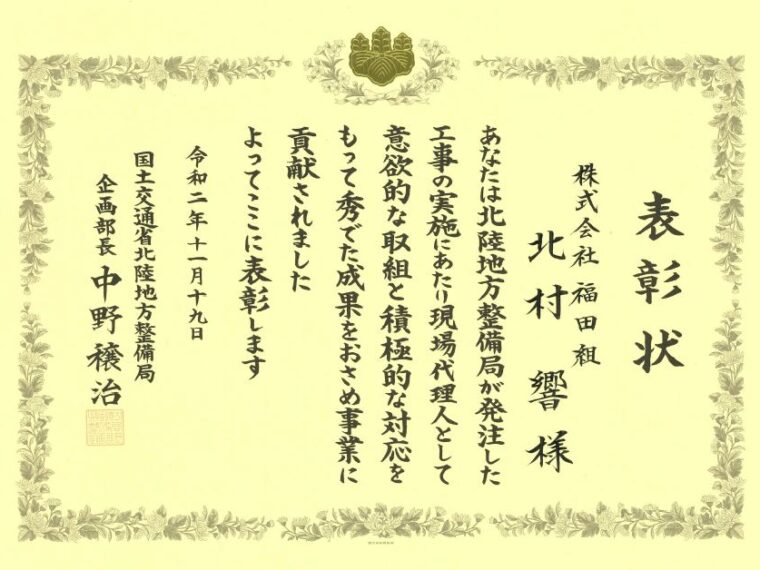 表彰状
株式会社 福田組
北村 響 様
あなたは北陸地方整備局が発注した
工事の実施にあたり現場代理人として
意欲的な取組と積極的な対応を
もって秀でた成果をおさめ事業に
貢献されました
よってここに表彰します
令和二年十一月十九日
国土交通省北陸地方整備局
企画部長 中野穣治